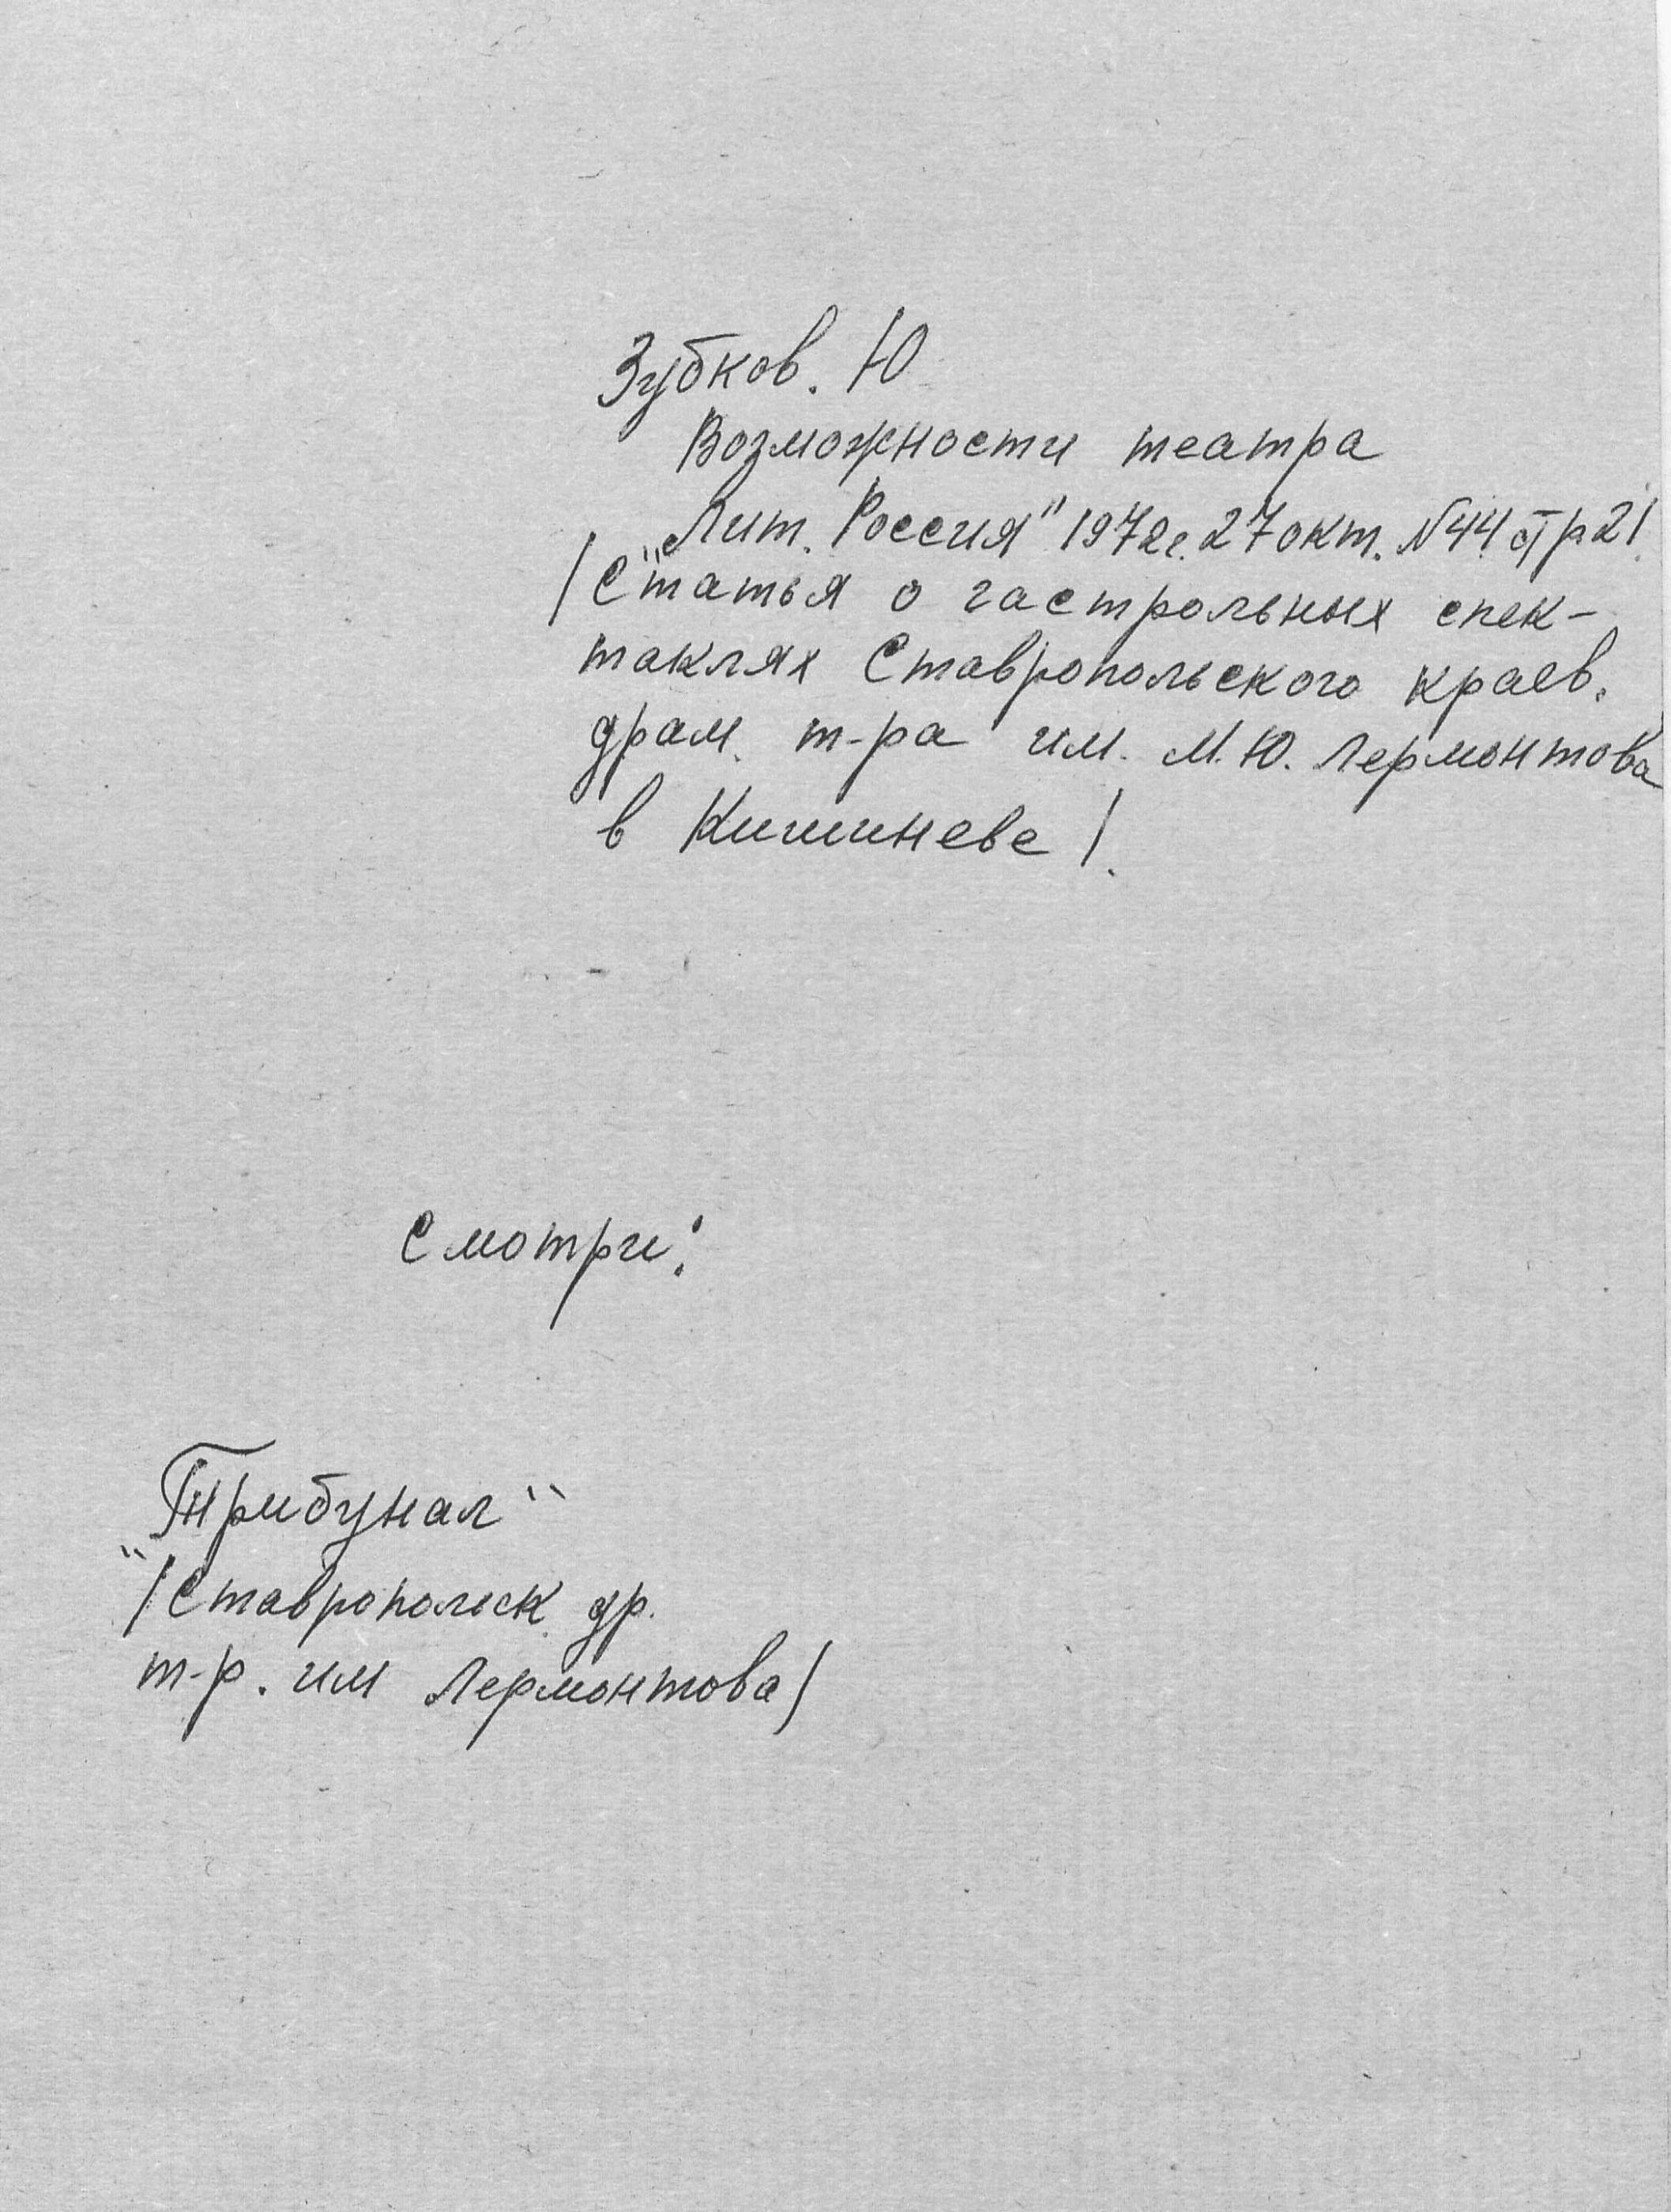 Зубков. Ю
Возможности театра
„Лит. Россия" 1972г. 27 окт. N44 стр 21.
/Статья о гастрольных спек-
таклях Ставропольского краев.
драм. т-ра им. М.Ю. Лермонтова
в Кишиневе/.
Смотри:
„Трибунал"
/Ставропольск. др.
т-р. им Лермонтова/